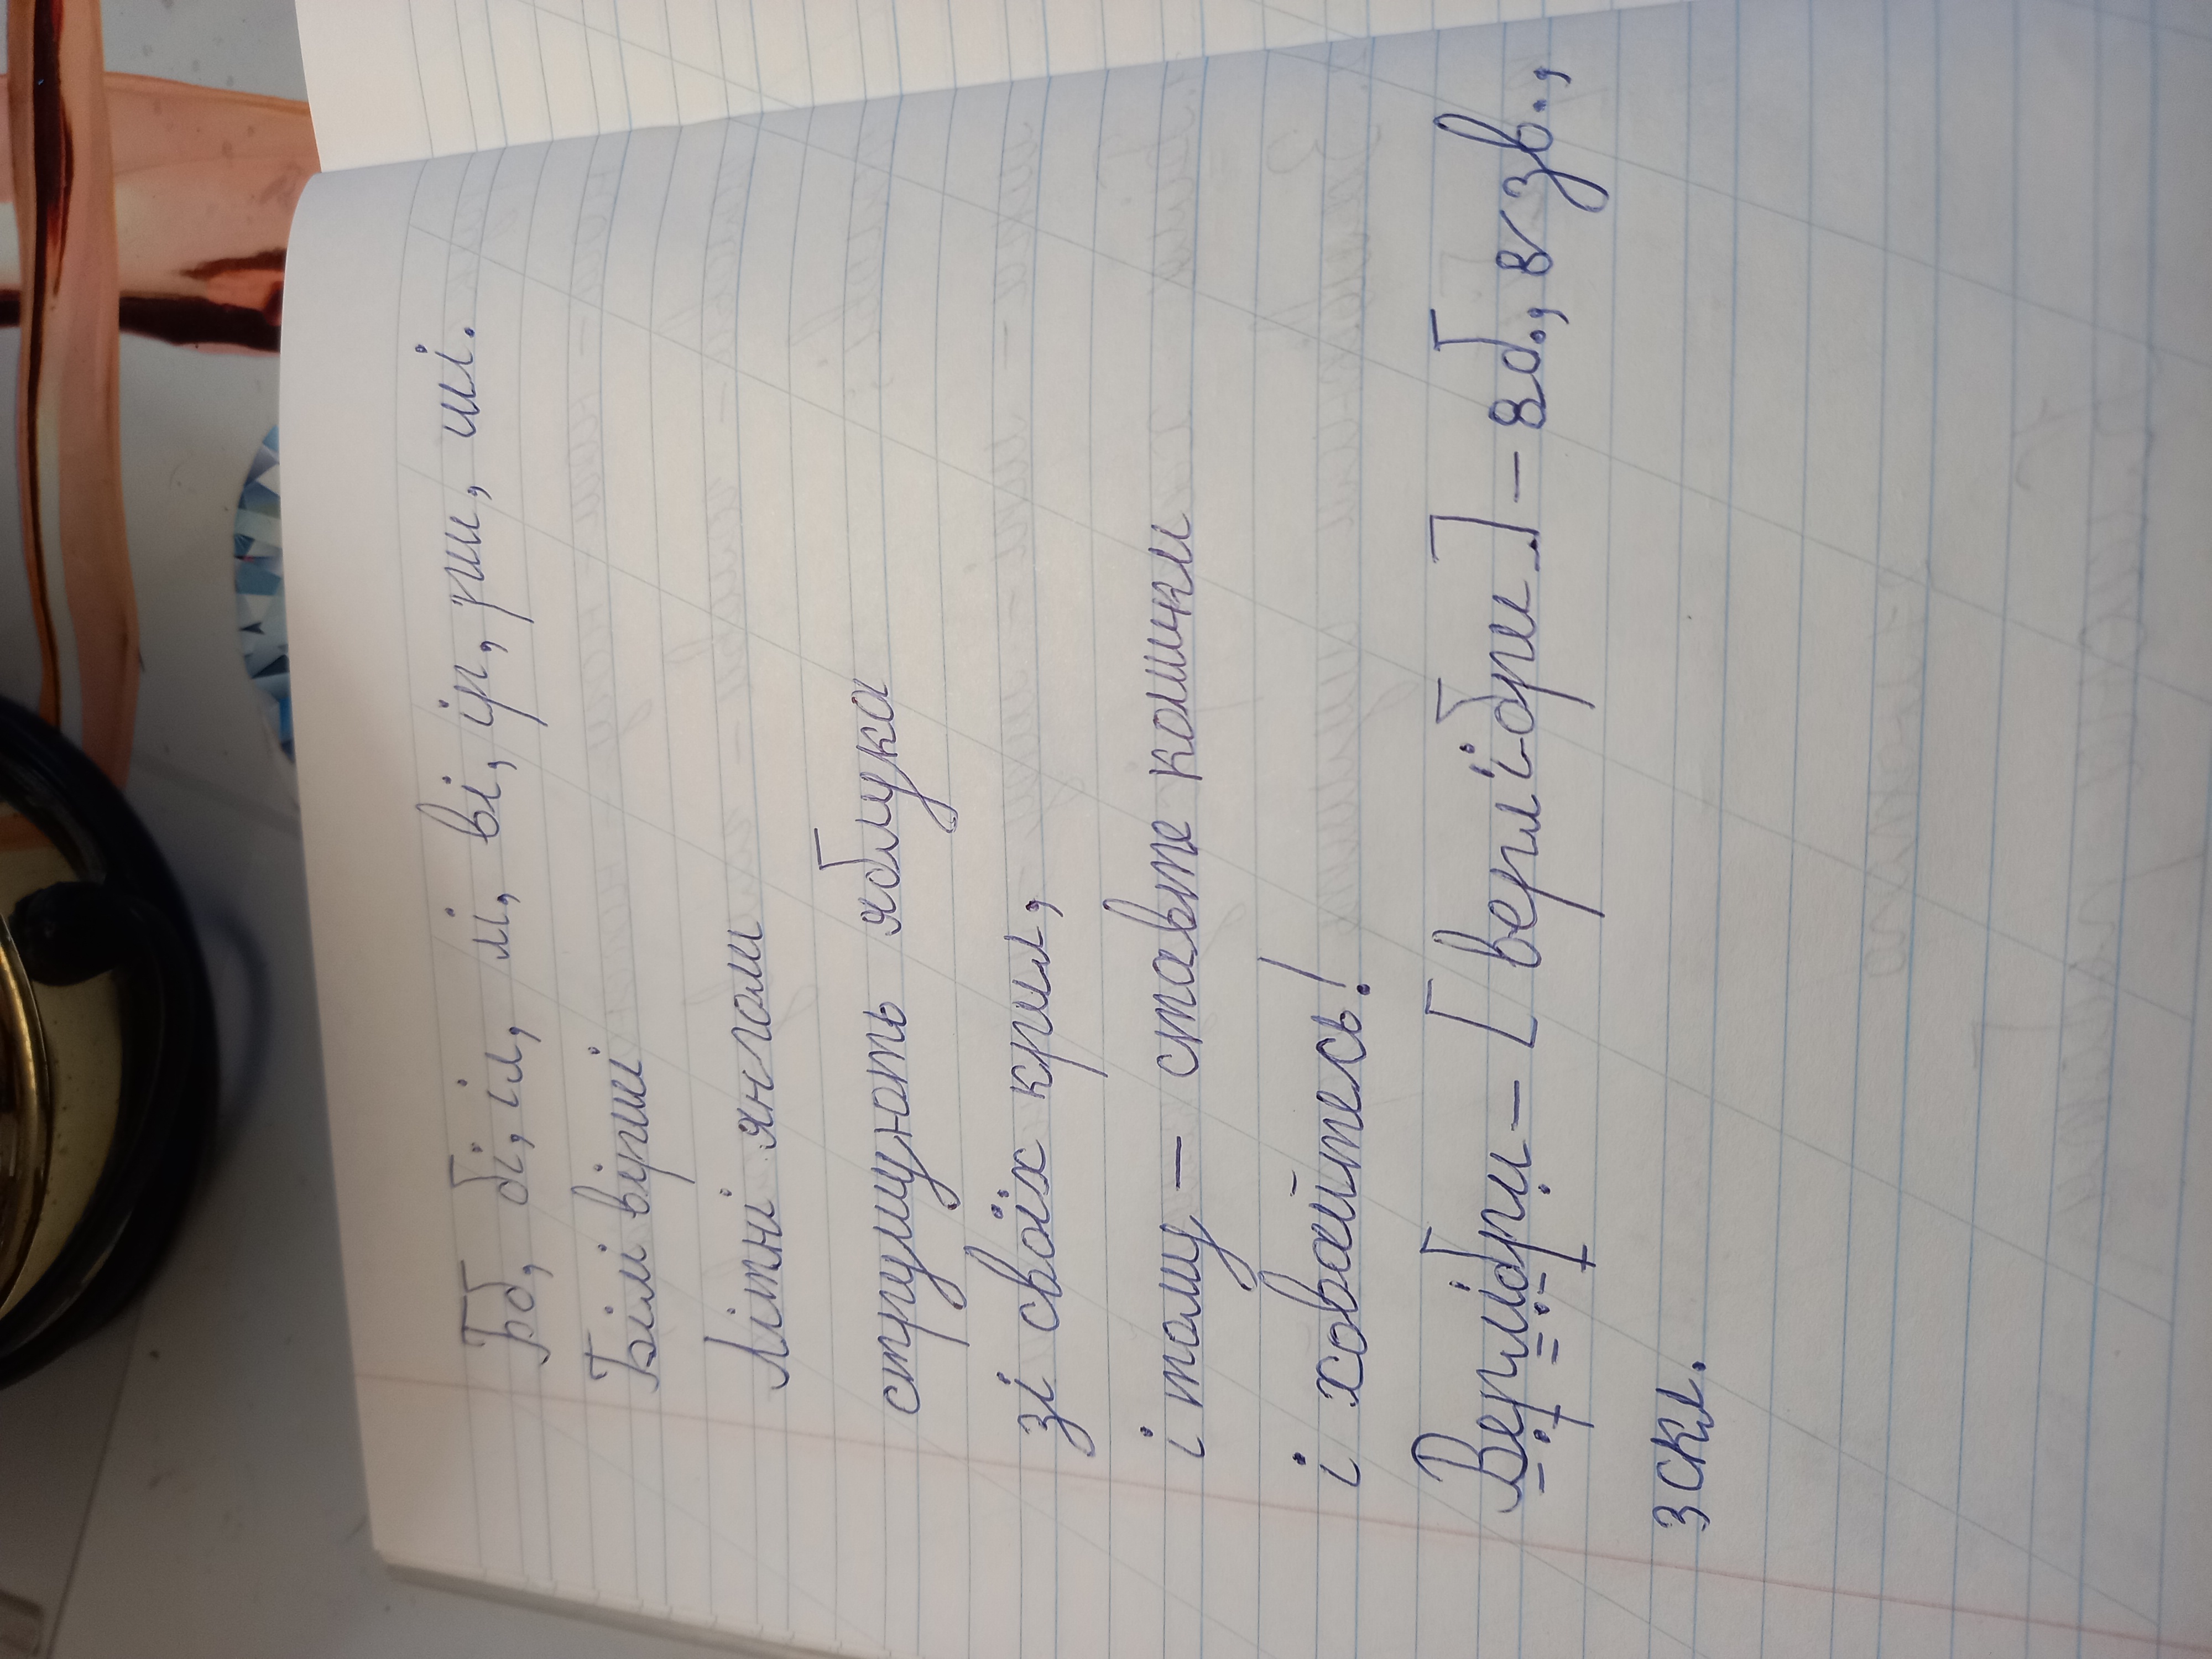 Бб, бі, іл, лі, ві, ір, рш, ші.
Білі вірші
Літні янголи
струшують яблука
зі своїх крил,
і тому – ставте кошики
і ховайтесь!
Верлібри – [верлібри] – 8б., 8 зв.,
3 скл.